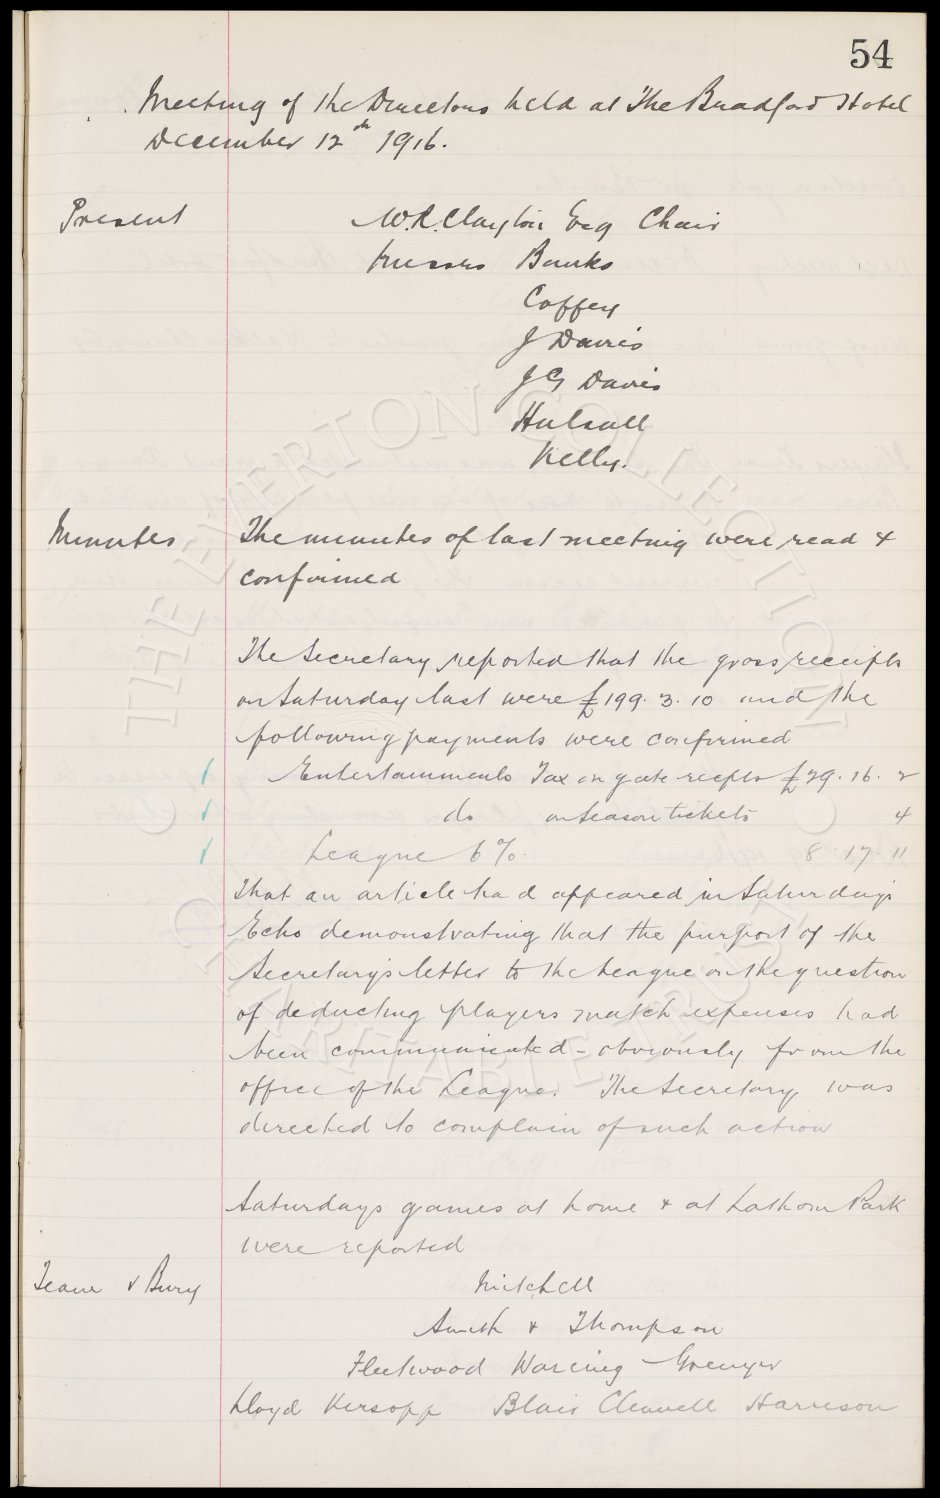 54
Meeting of the Directors held at The Bradford Hotel
December 12th 1916.
Present W.R. Clayton Esq Chair
Messrs Banks
Coffey
J Davies
J G Davies
Halsall
Kelly.
Minutes The minutes of last meeting were read &
confirmed
The Secretary reported that the gross receipts
on Saturday last were £199. 3. 10 and the
following payments were confirmed
Entertainments Tax on gate receipts £29. 16. 2
do on Season tickets 4
League 6% 8. 17. 11
That an article had appeared in Saturday's
Echo demonstrating that the purport of the
Secretary's letter to the League on the question
of deducting players match expenses had
been communicated - obviously from the
office of the League. The Secretary was
directed to complain of such action
Saturdays games at home & at Lathom Park
were reported
Team v Bury Mitchell
Smith & Thompson
Fleetwood Wareing Grenyer
Lloyd Kirsopp Blair Clennell Harrison
THE EVERTON COLLECTION
CHARITABLE TRUST